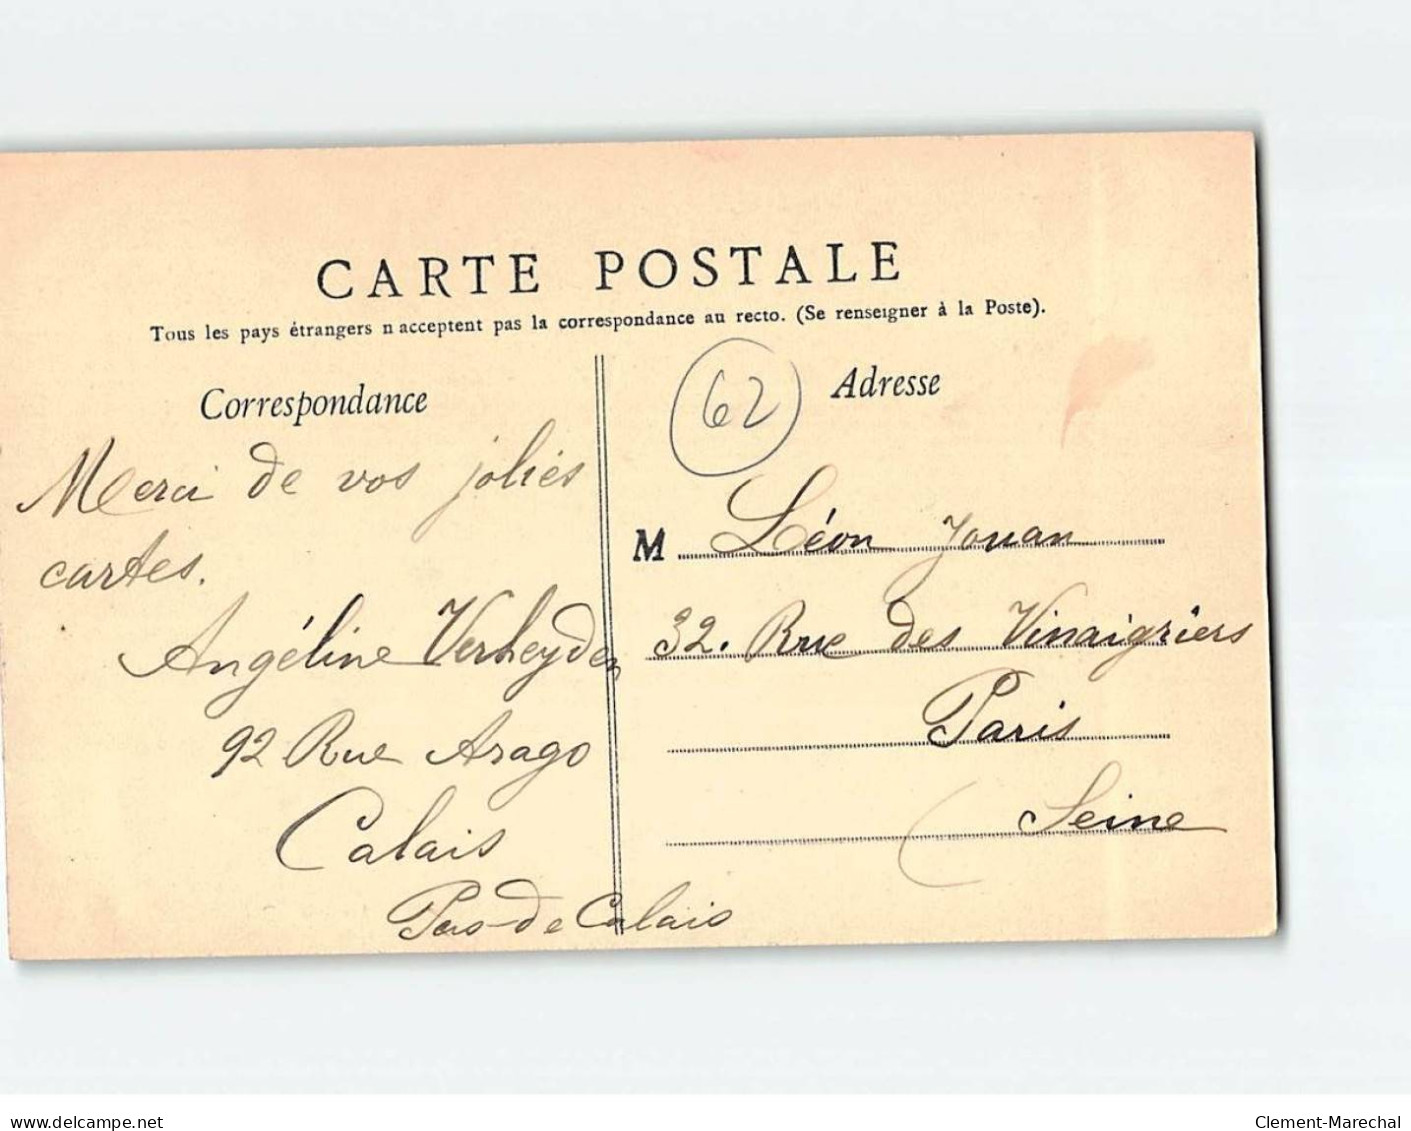 CARTE POSTALE
Tous les pays étrangers n acceptent pas la correspondance au recto. (Se renseigner à la Poste).
Correspondance
Merci de vos jolies
cartes.
Angéline Verheyden
92 Rue Arago
Calais
Pas-de Calais
62
Adresse
M Léon Jouan
32. Rue des Vinaigriers
Paris
Seine
delcampe.net
Clement-Marechal